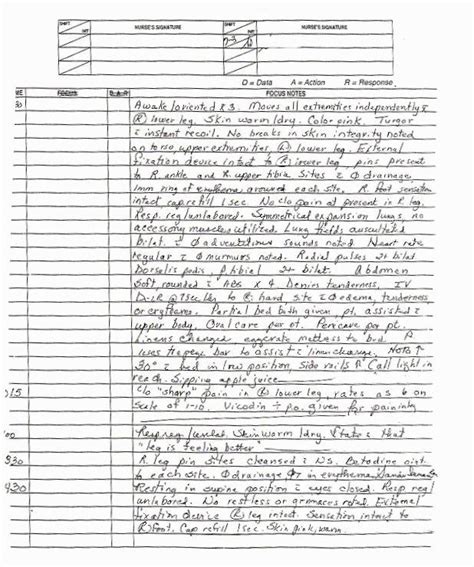 SHIFT INT NURSE'S SIGNATURE SHIFT INT NURSE'S SIGNATURE
D = Data A = Action R = Response
ME FOCUS D-A-R FOCUS NOTES
30 Awake/oriented x 3. Moves all extremities independently c̄
(R) lower leg. Skin warm/dry. Color pink. Turgor
c̄ instant recoil. No breaks in skin integrity noted
on torso upper extremities, (R) lower leg. External
fixation device intact to (R) lower leg pins present
to R. ankle and R. upper tibia. Sites c̄ ø drainage,
1mm ring of erythema around each site. R. foot sensation
intact cap refill 1sec. No c/o pain at present in R. leg.
Resp. reg/unlabored. Symmetrical expansion lungs, no
accessory muscles utilized. Lung fields auscultated
bilat. c̄ ø adventitious sounds noted. Heart rate
regular c̄ ø murmurs noted. Radial pulses 2+ bilat
Dorsalis pedis, P. tibial 2+ bilat. Abdomen
Soft, rounded c̄ ABS x 4. Denies tenderness. IV
hand site c̄ ø edema, tenderness
or erythema. Partial bed bath given, pt. assisted c̄
upper body. Oral care per pt. Pericare per pt.
Linens changed mattress to bed. P
uses trapeze bar to assist c̄ linen change. HOB ↑
30° c̄ bed in low position, side rails Call light in
reach. Sipping apple juice
015 c/o "sharp" pain in (R) lower leg, rates as 6 on
Scale of 1-10. Vicodin p.o. given for pain
00 Resp reg/unlab. Skin warm/dry. States that
"leg is feeling better"
330 R. leg pin sites cleansed c̄ NS. Betadine oint
to each site. ø drainage in erythema
430 Resting in supine position c̄ eyes closed. Resp reg/
unlabored. No restless or grimaces noted. External
fixation device (R) leg intact. Sensation intact to
R foot. Cap refill 1sec. Skin pink, warm.